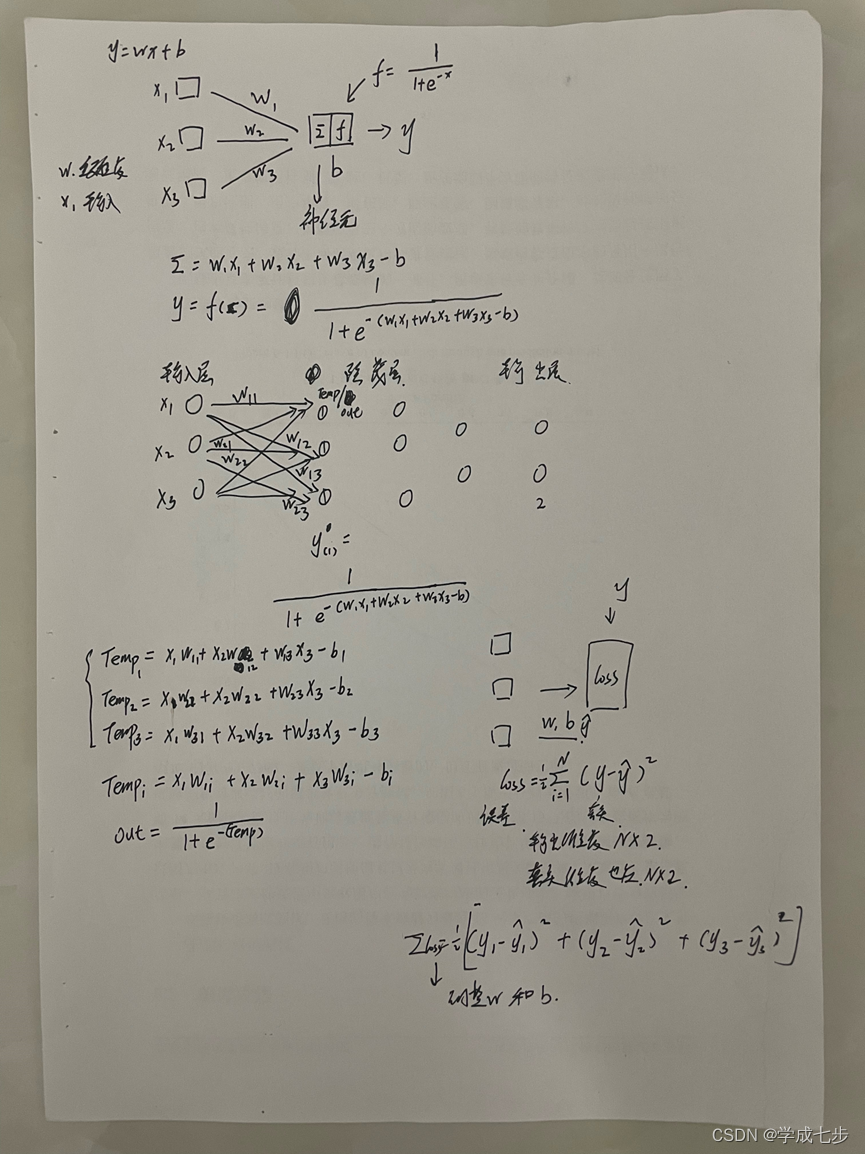 y=wx+b
f= 1/(1+e^-x)
x1 w1
x2 w2 Σ f → y
x3 w3 b
w.
x, 输入
神经元
Σ = w1x1 + w2x2 + w3x3 - b
y = f(Σ) = 1/(1+e^-(w1x1+w2x2+w3x3-b))
输入层 隐藏层. 输出层.
x1 w11 Temp/out
x2 w21 w12
w22 w13
x3 w23 2
y(1) =
1/(1+e^-(w1x1+w2x2+w3x3-b))
y
Temp1 = x1w11 + x2w12 + w13x3 - b1
loss
Temp2 = x1w22 + x2w22 + w23x3 - b2
w, b ŷ
Temp3 = x1w31 + x2w32 + w33x3 - b3
Tempi = x1w1i + x2w2i + x3w3i - bi
loss = 1/2 Σ i=1 N (y-ŷ)^2
out = 1/(1+e^-(Temp))
误差. 真实.
输出维度 N×2.
真实维度也应.N×2.
Σloss= 1/2[(y1-ŷ1)^2 + (y2-ŷ2)^2 + (y3-ŷ3)^2]
调整w和b.
CSDN @学成七步